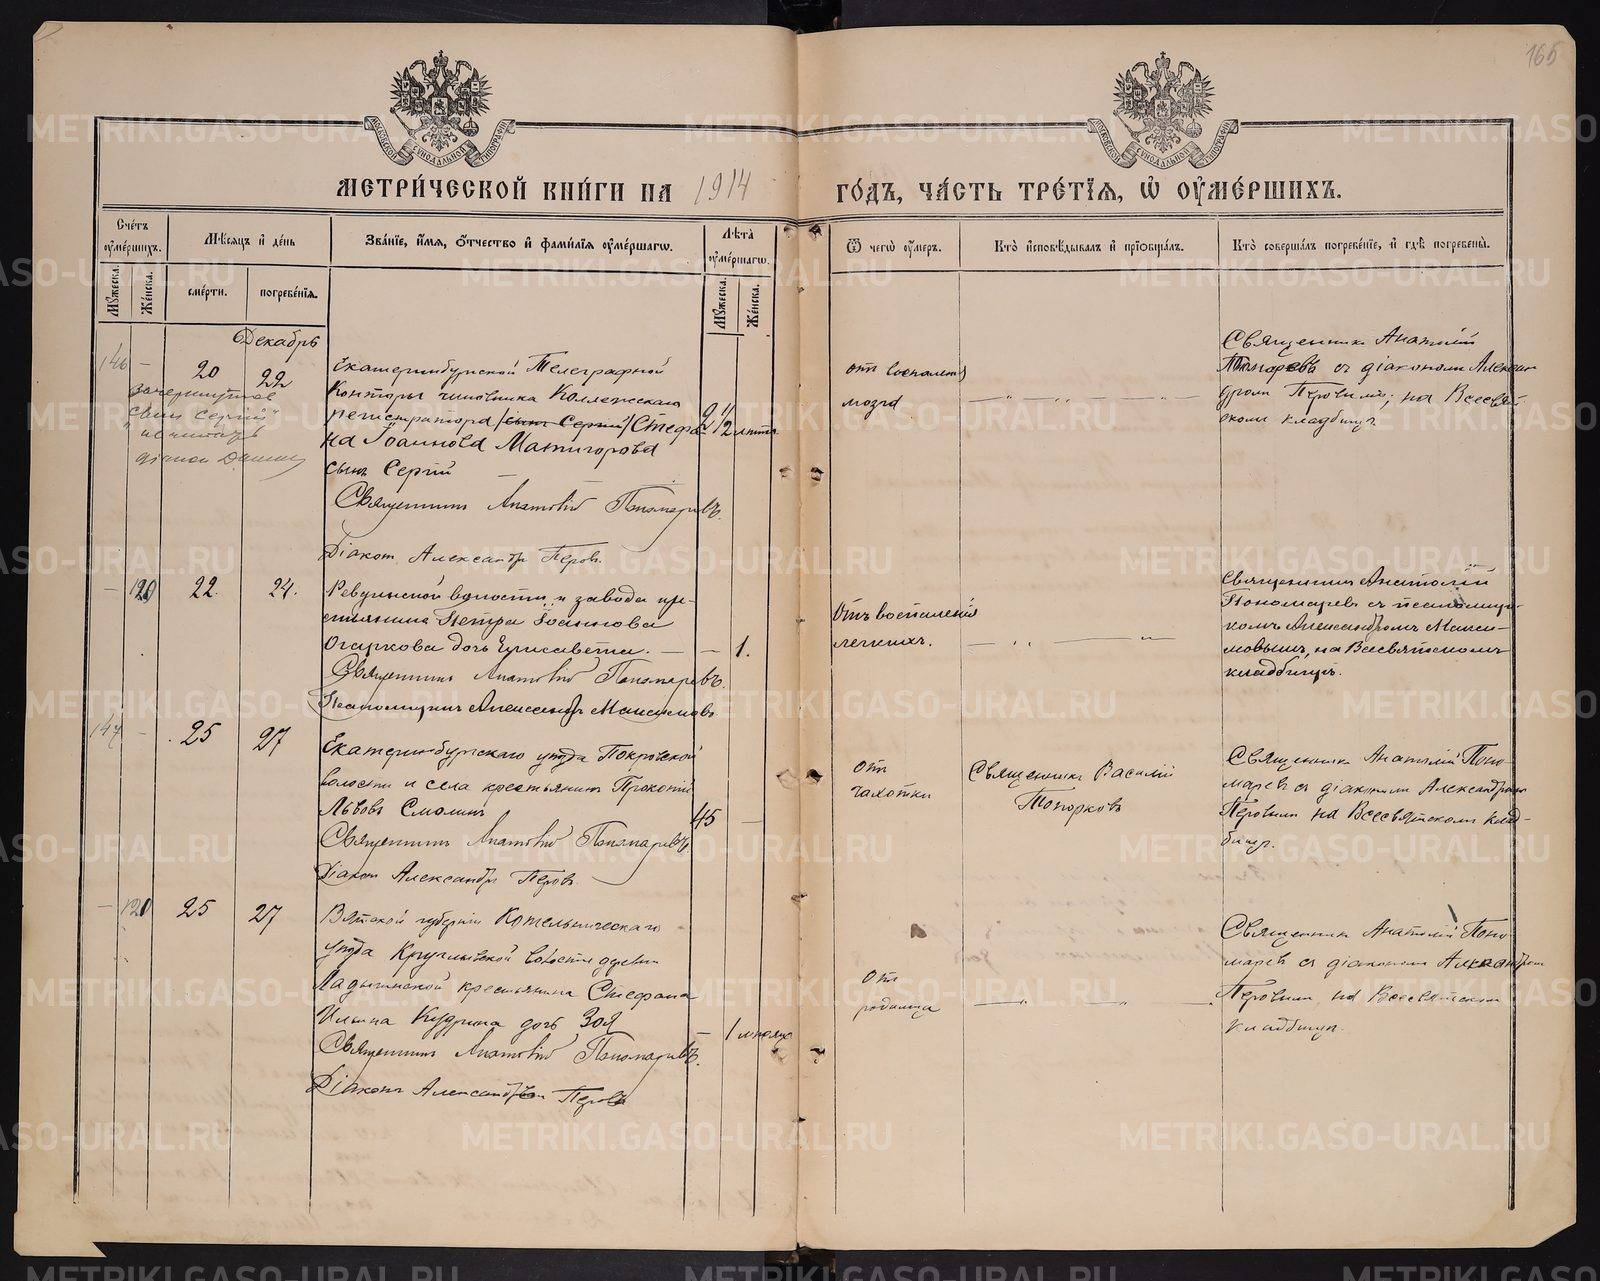 165
МЕТРИ́ЧЕСКОЙ КНИ́ГИ НА 1914 ГО́ДЪ, ЧА́СТЬ ТРЕ́ТІѦ, Ѡ҆ ОУ҆МЕ́РШИХЪ.
МОСКОВСКОЙ СѴНОДАЛЬНОЙ ТИПОГРАФІИ
МОСКОВСКОЙ СѴНОДАЛЬНОЙ ТИПОГРАФІИ
Сче́тъ оу҆ме́ршихъ.
Му́жеска.
Же́нска.
Мѣ́сяцъ и҆ де́нь
сме́рти.
погребе́нїѧ.
Зва́нїе, и҆́мѧ, ѻ҆́тчество и҆ фами́лїѧ оу҆ме́ршагѡ.
Лѣ́та оу҆ме́ршагѡ.
Му́жеска.
Же́нска.
Ѿ чегѡ̀ оу҆́меръ.
Кто̀ и҆сповѣ́дывалъ и҆ прїѡбща́лъ.
Кто̀ соверша́лъ погребе́нїе, и҆ гдѣ̀ погребены̀.
Декабрь
146 - 20 22
зачеркнутое
"сынъ Сергій"
не читать
Екатеринбургской Телеграфной
Конторы чиновника Коллежскаго
регистратора /сынъ Сергій/ Стефа
на Іоаннова Матигорова
сынъ Сергій
2 1/2 лѣтъ
Священникъ Анатолій Пономаревъ.
Діаконъ Александръ Перовъ.
отъ воспаленія
мозга
Священникъ Анатолій
Пономаревъ съ діакономъ Алексан
дромъ Перовымъ; на Всесвят
скомъ кладбищѣ
- 120 22. 24.
Ревдинской волости и завода кре-
стьянина Петра Іоаннова
Огаркова дочь Елисавета. — — 1.
Священникъ Анатолій Пономаревъ.
Псаломщикъ Александръ Максимовъ.
Отъ воспаленія
легкихъ.
Священникъ Анатолій
Пономаревъ съ псаломщи-
комъ Александромъ Макси-
мовымъ, на Всесвятскомъ
кладбищѣ.
147 - 25 27
Екатеринбургскаго уѣзда Покровской
волости и села крестьянинъ Прокопій
Львовъ Смолинъ
45 —
Священникъ Анатолій Пономаревъ.
Діаконъ Александръ Перовъ.
Отъ
чахотки
Священникъ Василій
Топорковъ
Священникъ Анатолій Поно-
маревъ съ діакономъ Александромъ
Перовымъ на Всесвятскомъ клад-
бищѣ.
— 120 25 27
Вятской губерніи Котельническаго
уѣзда Круглыжской волости деревни
крестьянина Стефана
Ильина Кудрина дочь Зоя
— 1 мѣсяцъ
Священникъ Анатолій Пономаревъ.
Діаконъ Александръ Перовъ
Отъ
родимца
Священникъ Анатолій Поно
маревъ съ діакономъ Александромъ
Перовымъ на Всесвятскомъ
кладбищѣ.
METRIKI.GASO-URAL.RU